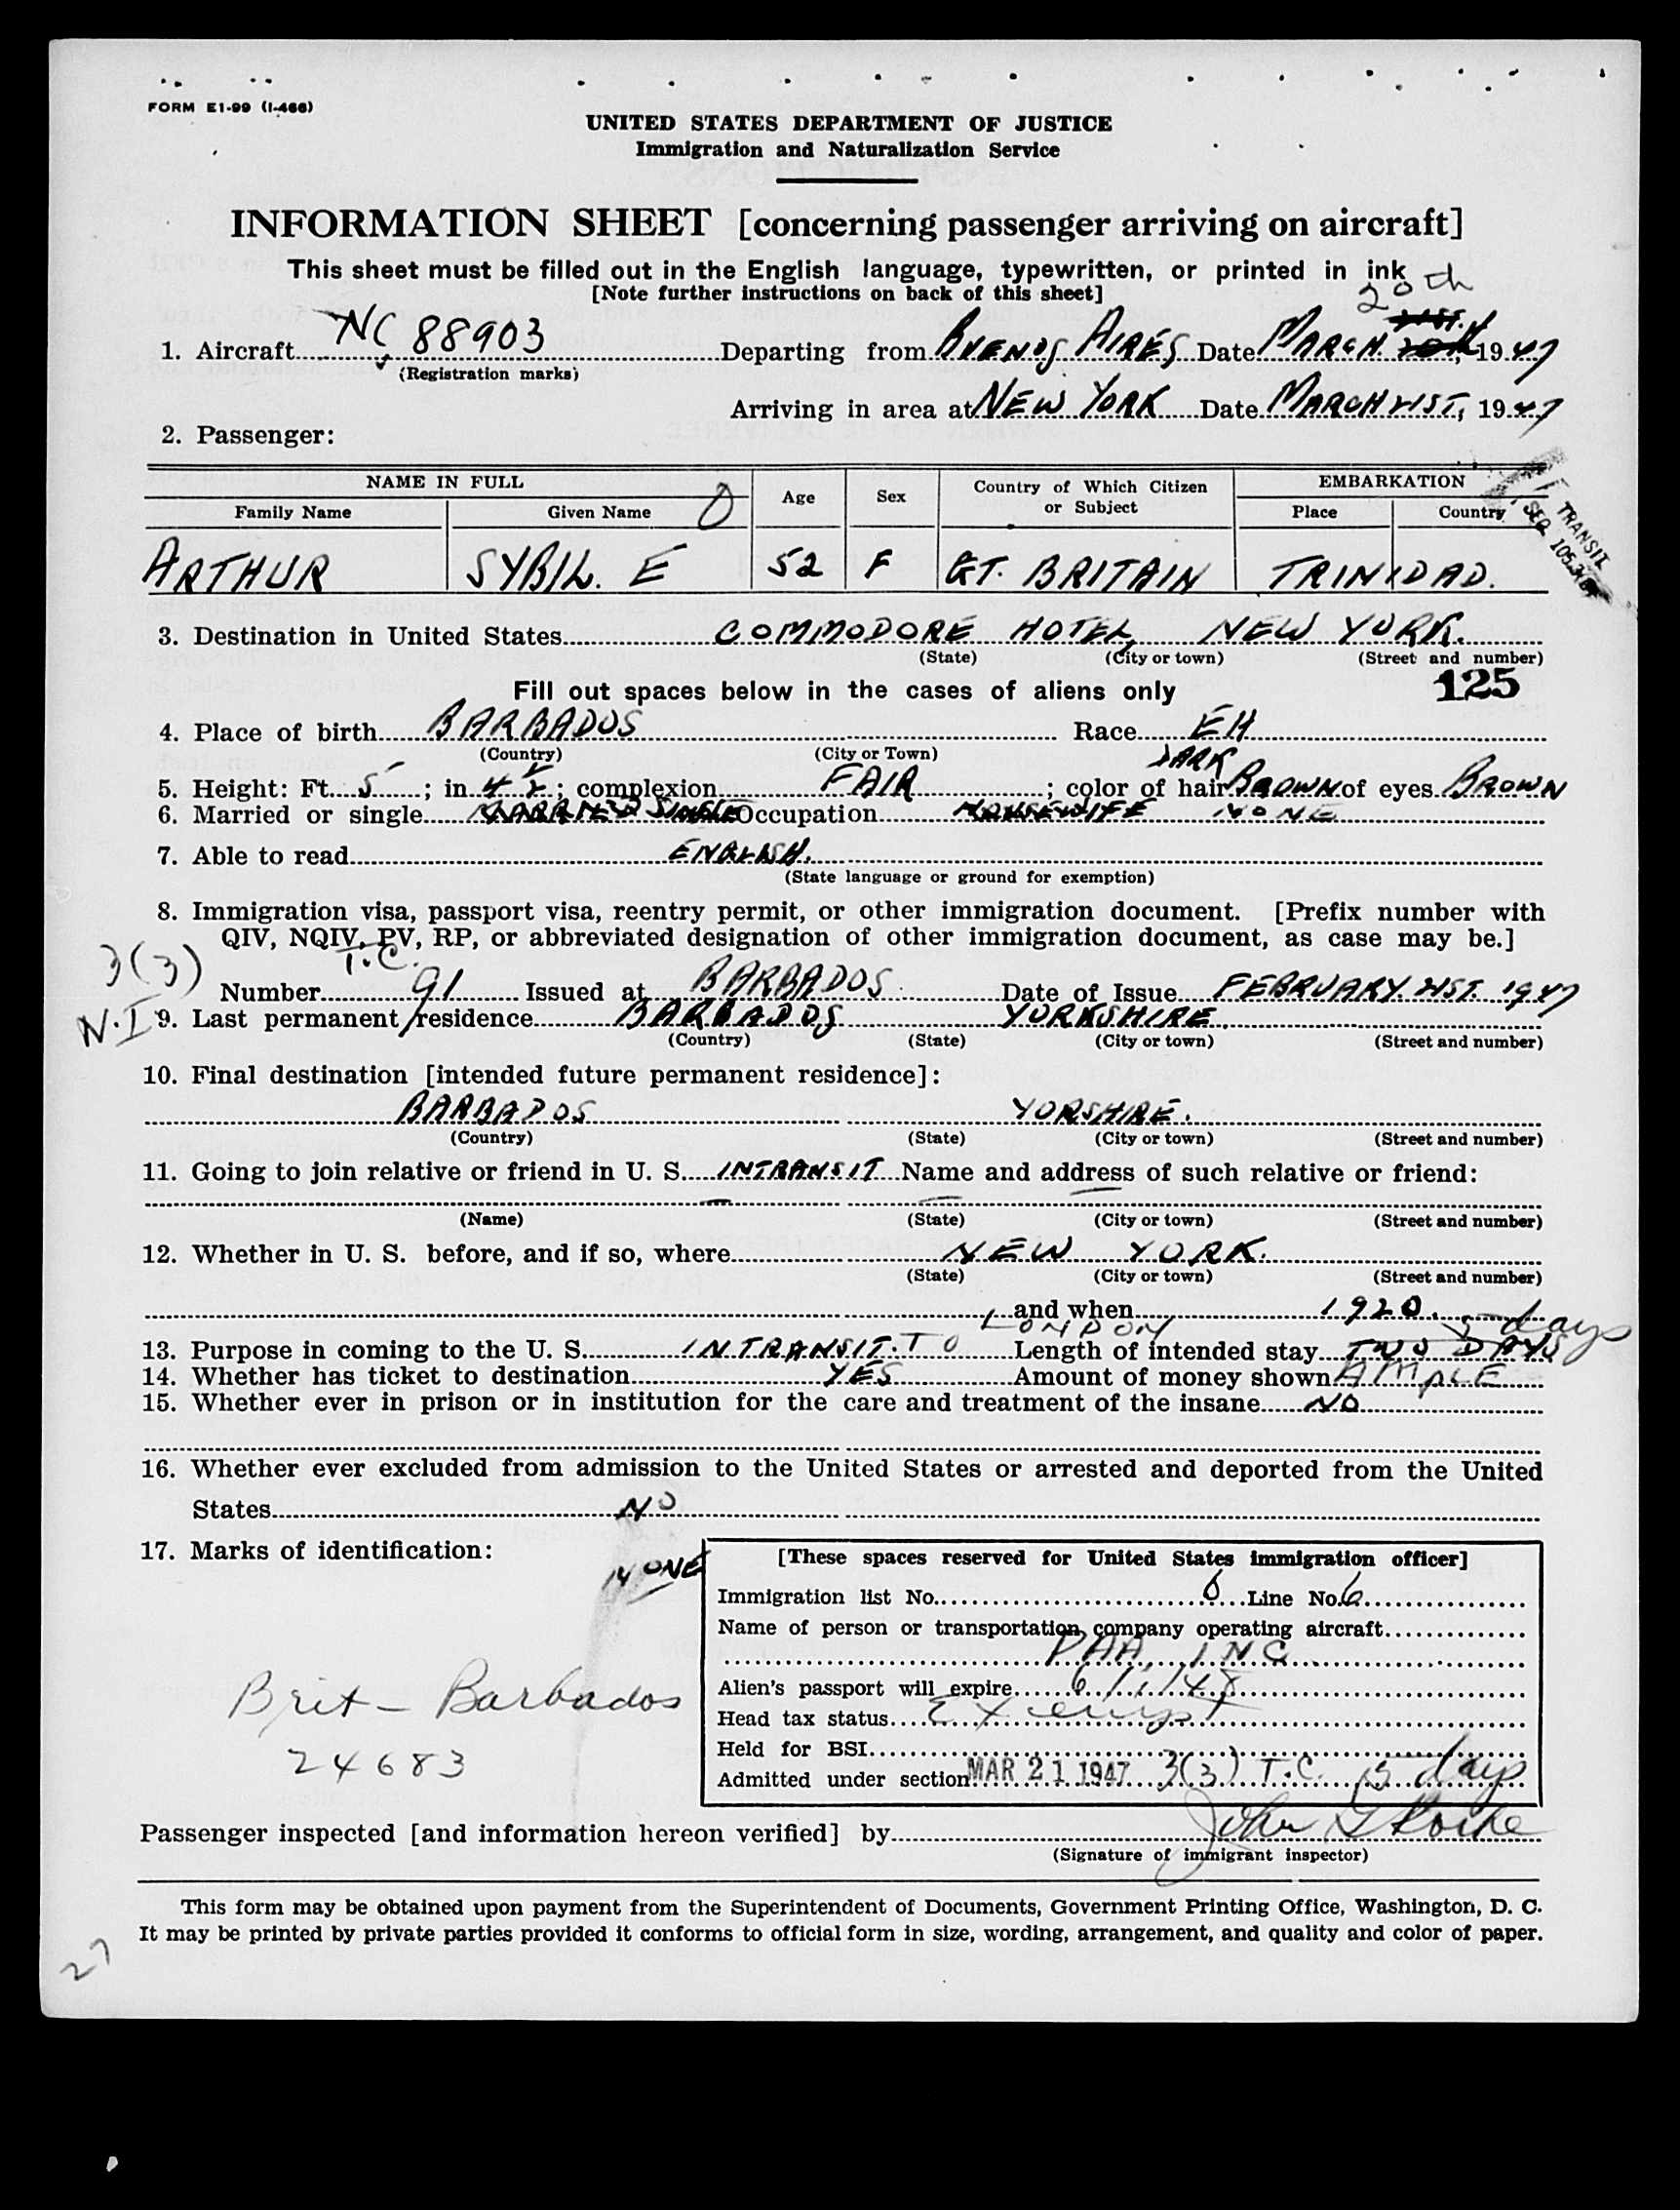 FORM E1-99 (I-466)
UNITED STATES DEPARTMENT OF JUSTICE
Immigration and Naturalization Service
INFORMATION SHEET [concerning passenger arriving on aircraft]
This sheet must be filled out in the English language, typewritten, or printed in ink
[Note further instructions on back of this sheet]
20th
1. Aircraft NC 88903 Departing from BUENOS AIRES Date MARCH 1947
(Registration marks)
Arriving in area at NEW YORK Date MARCH 21ST, 1947
2. Passenger:
NAME IN FULL Age Sex Country of Which Citizen or Subject EMBARKATION
Family Name Given Name Place Country
TRANSIT
ARTHUR SYBIL. E 52 F GT. BRITAIN TRINIDAD.
3. Destination in United States COMMODORE HOTEL NEW YORK.
(State) (City or town) (Street and number)
Fill out spaces below in the cases of aliens only 125
4. Place of birth BARBADOS Race EH
(Country) (City or Town)
DARK
5. Height: Ft. 5 ; in. 4 ; complexion FAIR ; color of hair BROWN of eyes BROWN
6. Married or single MARRIED SINGLE Occupation HOUSEWIFE NONE
7. Able to read ENGLISH.
(State language or ground for exemption)
8. Immigration visa, passport visa, reentry permit, or other immigration document. [Prefix number with
QIV, NQIV, PV, RP, or abbreviated designation of other immigration document, as case may be.]
3(3) T.C.
Number 91 Issued at BARBADOS Date of Issue FEBRUARY 21ST. 1947
N.I 9. Last permanent residence BARBADOS YORKSHIRE
(Country) (State) (City or town) (Street and number)
10. Final destination [intended future permanent residence]:
BARBADOS YORSHIRE.
(Country) (State) (City or town) (Street and number)
11. Going to join relative or friend in U. S. INTRANSIT Name and address of such relative or friend:
(Name) (State) (City or town) (Street and number)
12. Whether in U. S. before, and if so, where NEW YORK.
(State) (City or town) (Street and number)
and when 1920.
5 days
13. Purpose in coming to the U. S. INTRANSIT. TO LONDON Length of intended stay TWO DAYS
14. Whether has ticket to destination YES Amount of money shown AMPLE
15. Whether ever in prison or in institution for the care and treatment of the insane NO
16. Whether ever excluded from admission to the United States or arrested and deported from the United
States NO
17. Marks of identification:
NONE
[These spaces reserved for United States immigration officer]
Immigration list No. 6 Line No. 6
Name of person or transportation company operating aircraft
PAA, INC
Alien's passport will expire 6/1/48
Head tax status Exempt
Held for BSI
Admitted under section MAR 21 1947 3(3) T.C. 5 days
Brit - Barbados
24683
Passenger inspected [and information hereon verified] by John
(Signature of immigrant inspector)
This form may be obtained upon payment from the Superintendent of Documents, Government Printing Office, Washington, D. C.
It may be printed by private parties provided it conforms to official form in size, wording, arrangement, and quality and color of paper.
27